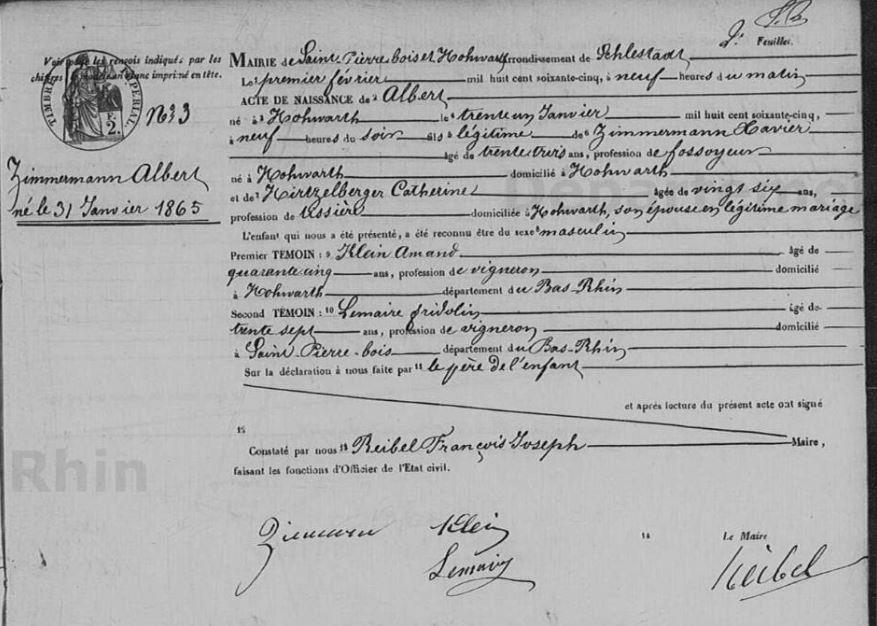 2e Feuillet.
Voir pour les renvois indiqués par les
chiffres le modèle en blanc imprimé en tête.
TIMBRE IMPÉRIAL
2.
No 3
Zimmermann Albert
né le 31 Janvier 1865
MAIRIE de Saint Pierre bois et Hohwarth arrondissement de Schlestadt
Le premier février mil huit cent soixante-cinq, à neuf heures du matin
ACTE DE NAISSANCE de Albert
né à Hohwarth le trente un Janvier mil huit cent soixante-cinq,
à neuf heures du soir fils légitime de Zimmermann Xavier
âgé de trente trois ans, profession de fossoyeur
né à Hohwarth domicilié à Hohwarth
et de Hirtzelberger Catherine âgée de vingt six ans,
profession de tissière domiciliée à Hohwarth, son épouse en légitime mariage
L'enfant qui nous a été présenté, a été reconnu être du sexe masculin
Premier TÉMOIN : 9 Klein Amand âgé de
quarante cinq ans, profession de vigneron domicilié
à Hohwarth département du Bas-Rhin
Second TÉMOIN : 10 Lemaire fridolin âgé de
trente sept ans, profession de vigneron domicilié
à Saint-Pierre-bois département du Bas-Rhin
Sur la déclaration à nous faite par 11 le père de l'enfant
et après lecture du présent acte ont signé
12
Constaté par nous 13 Reibel François Joseph Maire,
faisant les fonctions d'Officier de l'Etat civil.
Rhin
Klein
14 Le Maire
Lemaire
Reibel